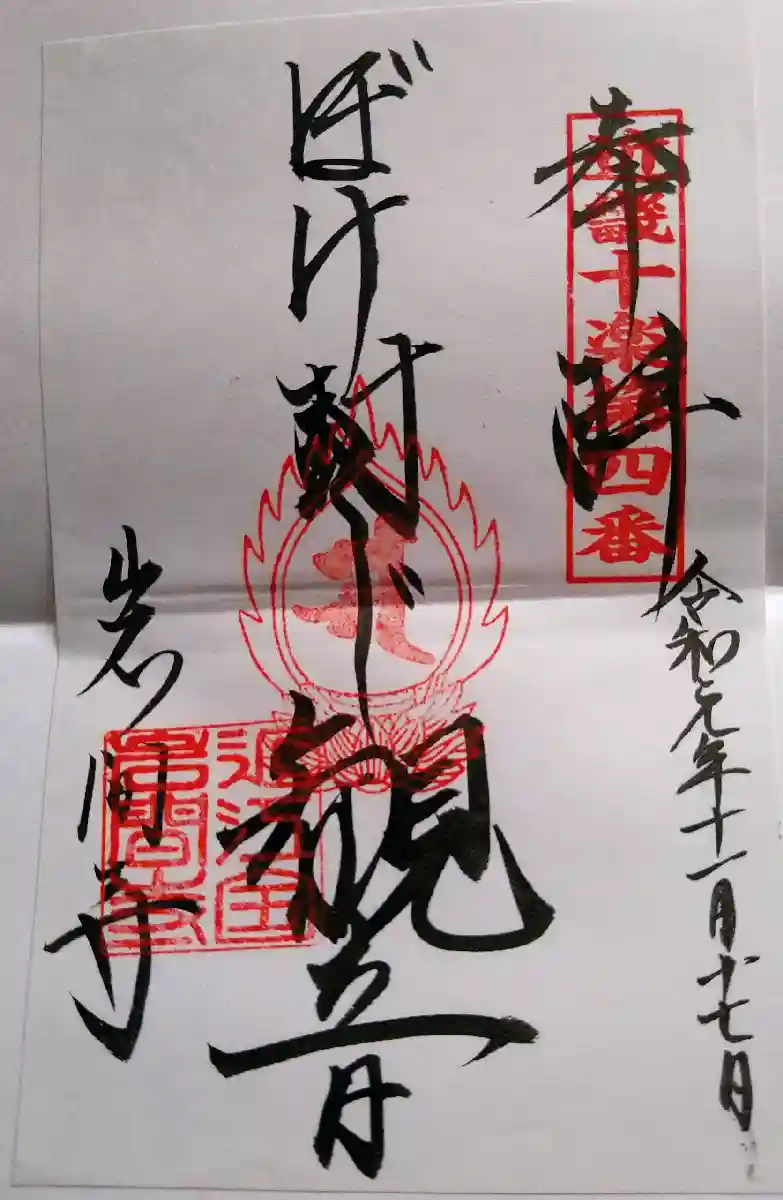 奉拝
近畿十楽第四番
令和元年十一月廿七日
ぼけ封じ
観音
岩间寺
近江国
岩間寺